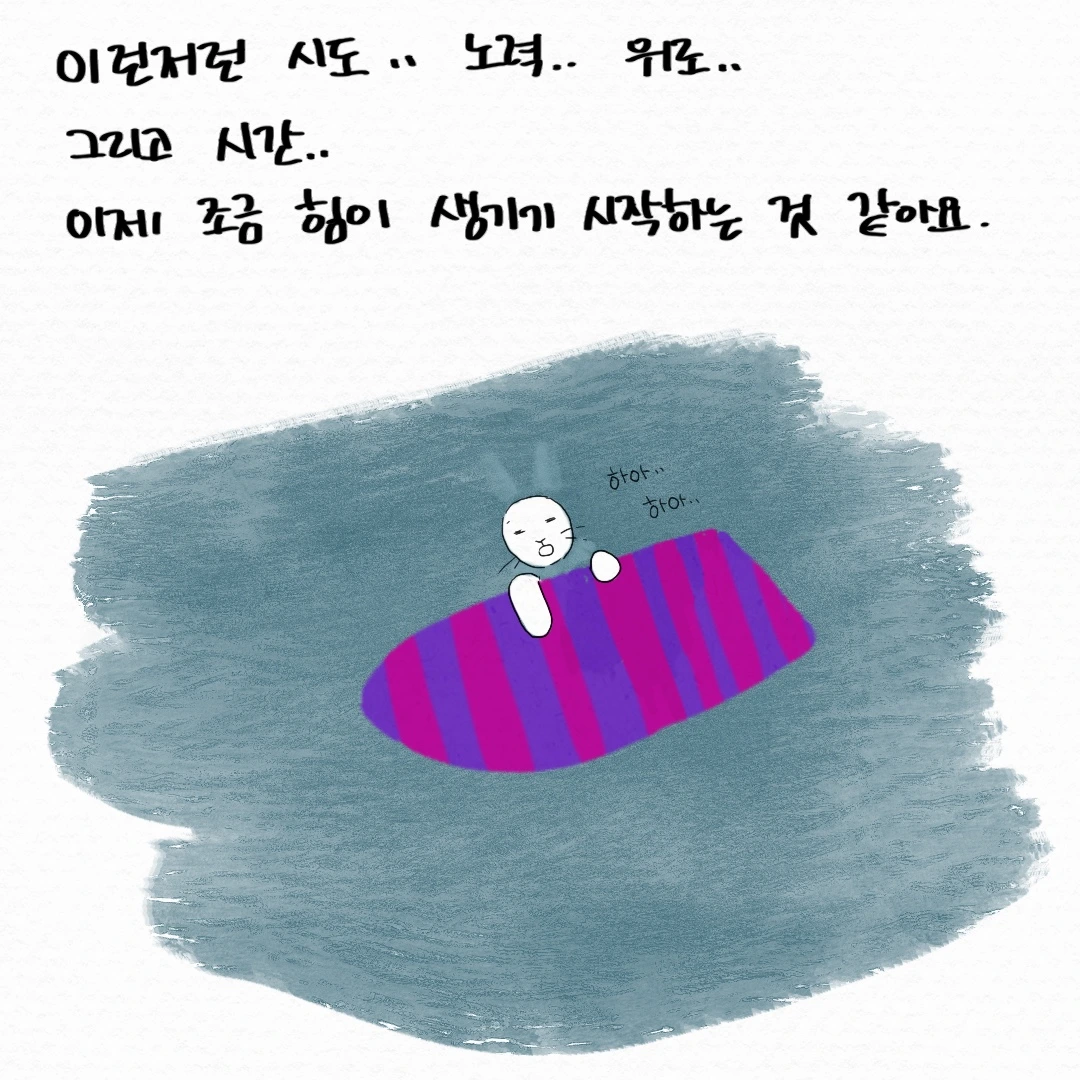 이런저런 시도.. 노력.. 위로..
그리고 시간..
이제 조금 힘이 생기기 시작하는 것 같아요.
하아..
하아..